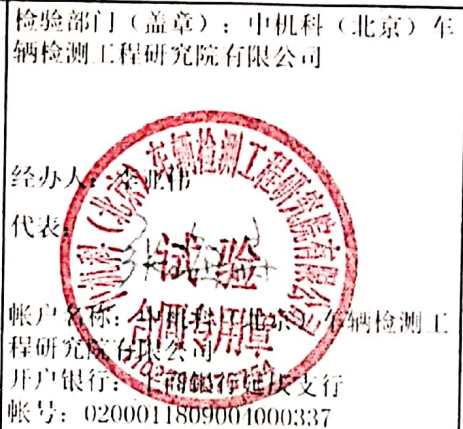 检验部门（盖章）：中机科（北京）车
辆检测工程研究院有限公司
经办人：李亚伟
代表：
中机科（北京）车辆检测工程研究院有限公司
试验
合同专用章
帐户名称：中机科（北京）车辆检测工
程研究院有限公司
开户银行：工商银行延庆支行
帐号：0200011809004000337